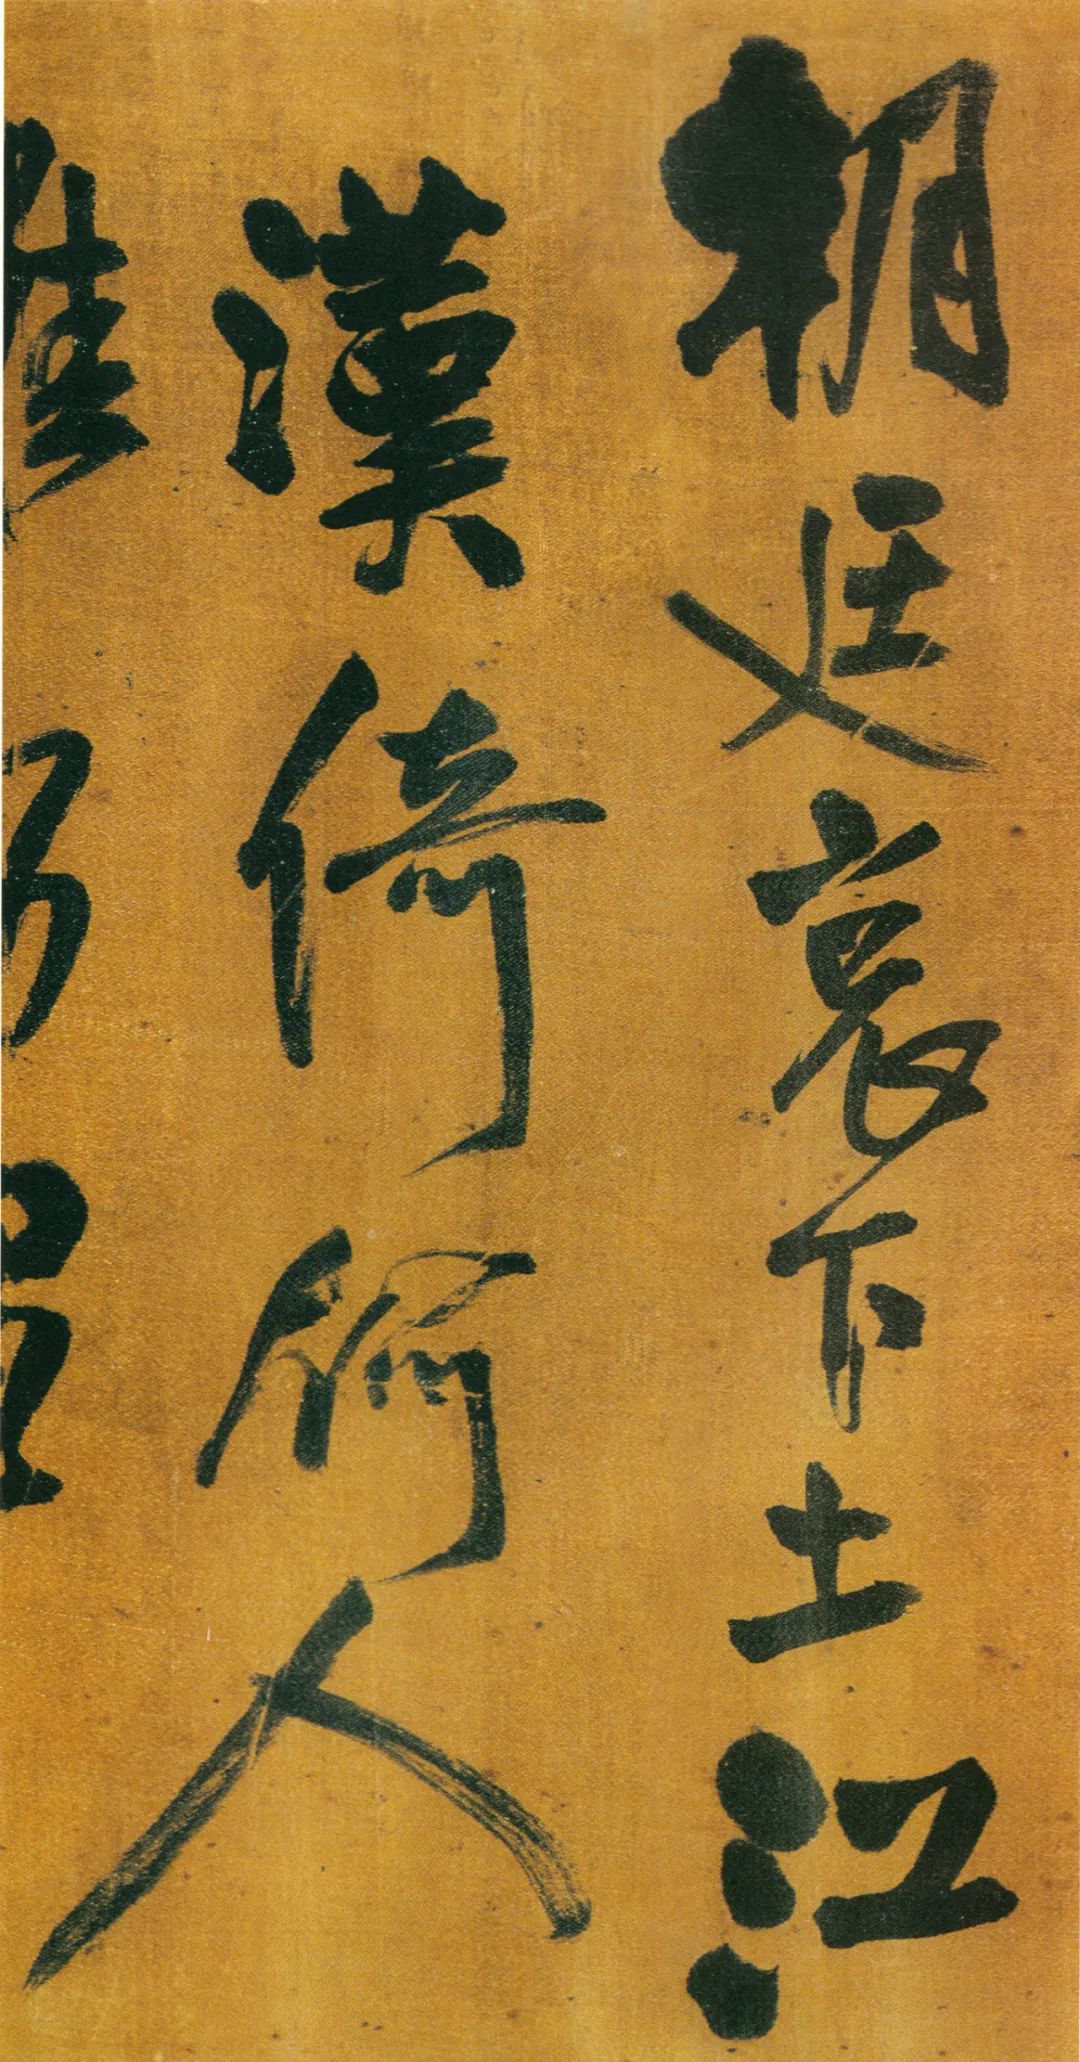 朝廷哀下土江
漢倚何人